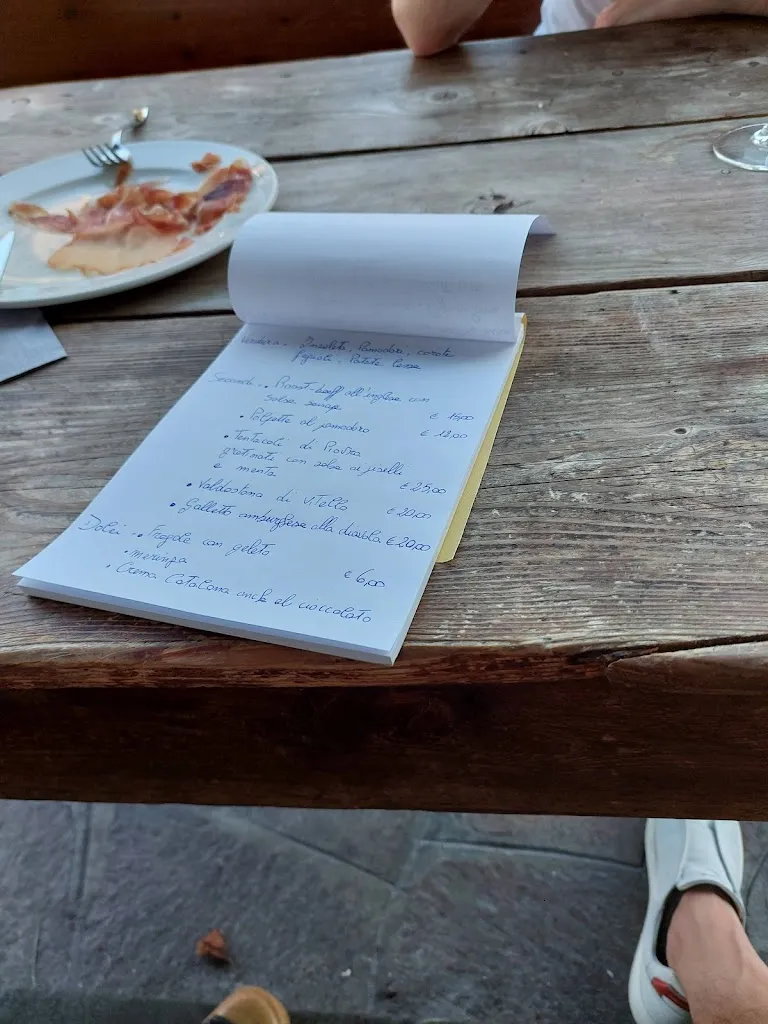 Verdura. Insalata, Pomodori, carote
fagioli. Patate lesse
Secondi. • Roast-beeff all'inglese con
salsa senape € 15,00
• Polpette al pomodoro € 12,00
• Tentacoli di Piovra
gratinati con salsa ai piselli
e menta € 25,00
• Valdostana di Vitello € 20,00
• Galletto amburghese alla diavola € 20,00
Dolci • Fragole con gelato
• meringa € 6,00
• Crema Catalana anche al cioccolato